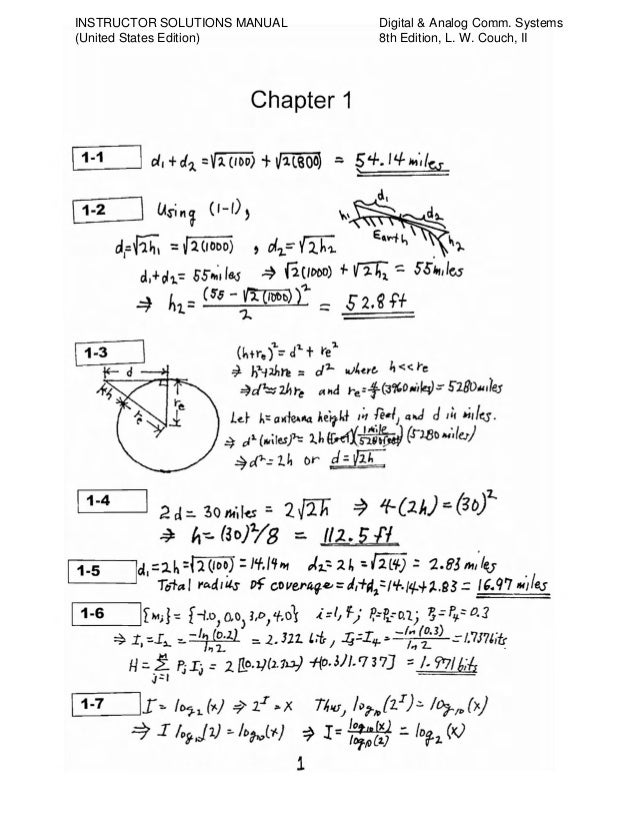 INSTRUCTOR SOLUTIONS MANUAL Digital & Analog Comm. Systems
(United States Edition) 8th Edition, L. W. Couch, II
Chapter 1
1-1 d₁ + d₂ = √2(100) + √2(800) = 54.14 miles
1-2 Using (1-1),
d₁ d₂ h₁ Earth h₂
d₁=√2h₁ = √2(1000) , d₂=√2h₂
d₁+d₂= 55 miles ⇒ √2(1000) + √2h₂ = 55 miles
⇒ h₂= (55 - √2(1000))²/2 = 52.8 ft
1-3 (h+rₑ)² = d² + rₑ²
d h rₑ rₑ
⇒ h²+2hrₑ = d² where h<<rₑ
⇒d²≈2hrₑ and rₑ=4/3(3960 miles)= 5280 miles
Let h= antenna height in feet, and d in miles.
⇒ d²(miles)²= 2h(feet)(1 mile/5280 feet)(5280 miles)
⇒d²=2h or d=√2h
1-4 2d = 30 miles = 2√2h ⇒ 4(2h)=(30)²
⇒ h=(30)²/8 = 112.5 ft
1-5 d₁=2h=√2(100)=14.14 m d₂=2h=√2(4) = 2.83 miles
Total radius of coverage=d₁+d₂=14.14+2.83 = 16.97 miles
1-6 {mᵢ}= {-1.0, 0.0, 3.0, 4.0} i=1,4; P₁=P₂=0.2; P₃=P₄=0.3
⇒ I₁=I₂ = -ln(0.2)/ln2 = 2.322 bits, I₃=I₄= -ln(0.3)/ln2 =1.737 bits
H= Σ Pⱼ Iⱼ = 2[(0.2)(2.322) +(0.3)1.737] = 1.971 bits
j=1
1-7 I = log₂(x) ⇒ 2ᴵ = x Thus, log₁₀(2ᴵ)= log₁₀(x)
⇒ I log₁₀(2) = log₁₀(x) ⇒ I= log₁₀(x)/log₁₀(2) = log₂(x)
1